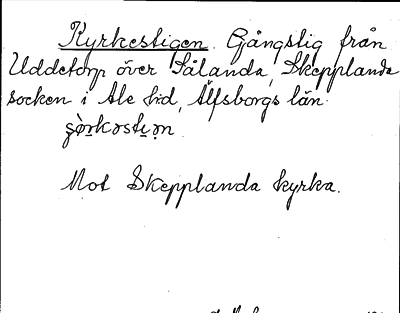 Kyrkestigen. Gångstig från
Uddetorp över Sålanda, Skepplanda
socken i Ale hd, Älfsborgs län.
Mot Skepplanda kyrka.